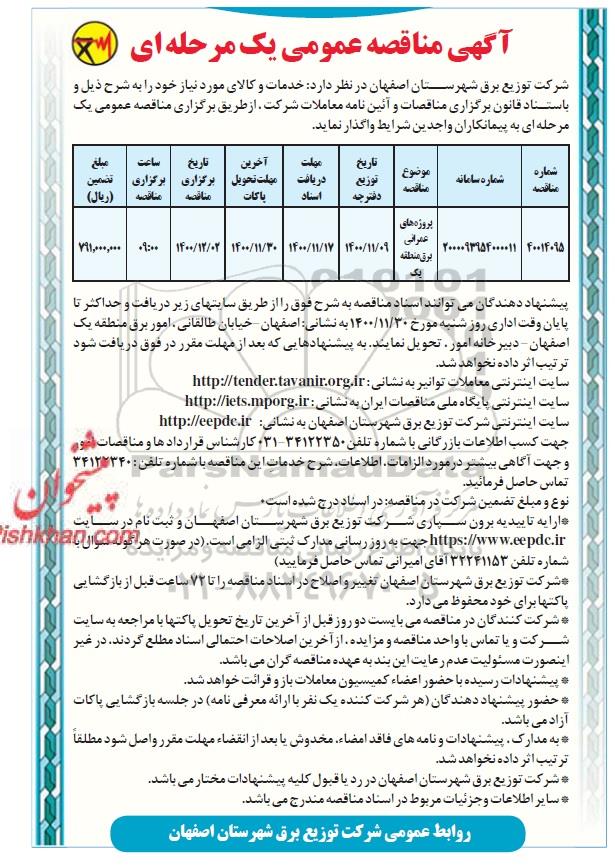 آگهی مناقصه عمومی یک مرحله ای
شرکت توزیع برق شهرستان اصفهان در نظر دارد: خدمات و کالای مورد نیاز خود را به شرح ذیل و
باستناد قانون برگزاری مناقصات و آئین نامه معاملات شرکت ، ازطریق برگزاری مناقصه عمومی یک
مرحله ای به پیمانکاران واجدین شرایط واگذار نماید.
شماره مناقصه | شماره سامانه | موضوع مناقصه | تاریخ توزیع دفترچه | مهلت دریافت اسناد | آخرین مهلت تحویل پاکات | تاریخ برگزاری مناقصه | ساعت برگزاری مناقصه | مبلغ تضمین (ریال)
۴۰۰۱۴۰۹۵ | ۲۰۰۰۰۹۳۹۵۴۰۰۰۰۱۱ | پروژه‌های عمرانی برق منطقه یک | ۱۴۰۰/۱۱/۰۹ | ۱۴۰۰/۱۱/۱۷ | ۱۴۰۰/۱۱/۳۰ | ۱۴۰۰/۱۲/۰۲ | ۰۹:۰۰ | ۷۹۱,۰۰۰,۰۰۰
پیشنهاد دهندگان می توانند اسناد مناقصه به شرح فوق را از طریق سایتهای زیر دریافت و حداکثر تا
پایان وقت اداری روز شنبه مورخ ۱۴۰۰/۱۱/۳۰ به نشانی: اصفهان -خیابان طالقانی ، امور برق منطقه یک
اصفهان – دبیرخانه امور ، تحویل نمایند. به پیشنهادهایی که بعد از مهلت مقرر در فوق دریافت شود
ترتیب اثر داده نخواهد شد.
سایت اینترنتی معاملات توانیر به نشانی: http://tender.tavanir.org.ir
سایت اینترنتی پایگاه ملی مناقصات ایران به نشانی: http://iets.mporg.ir
سایت اینترنتی شرکت توزیع برق شهرستان اصفهان به نشانی: http://eepdc.ir
جهت کسب اطلاعات بازرگانی با شماره تلفن ۳۴۱۲۲۳۵۰-۰۳۱ کارشناس قرارداد ها و مناقصات امور
و جهت آگاهی بیشتر در مورد الزامات، اطلاعات، شرح خدمات این مناقصه با شماره تلفن: ۳۴۱۲۲۳۴۰
تماس حاصل فرمائید.
نوع و مبلغ تضمین شرکت در مناقصه: در اسناد درج شده است*
*ارایه تاییدیه برون سپاری شرکت توزیع برق شهرستان اصفهان و ثبت نام در سایت
https://www.eepdc.ir جهت به روز رسانی مدارک ثبتی الزامی است. (در صورت هرگونه سوال با
شماره تلفن ۳۲۲۴۱۱۵۳ آقای امیرانی تماس حاصل فرمایید)
*شرکت توزیع برق شهرستان اصفهان تغییر و اصلاح در اسناد مناقصه را تا ۷۲ ساعت قبل از بازگشایی
پاکتها برای خود محفوظ می دارد.
*شرکت کنندگان در مناقصه می بایست دو روز قبل از آخرین تاریخ تحویل پاکتها با مراجعه به سایت
شرکت و یا تماس با واحد مناقصه و مزایده ، از آخرین اصلاحات احتمالی اسناد مطلع گردند. در غیر
اینصورت مسئولیت عدم رعایت این بند به عهده مناقصه گران می باشد.
* پیشنهادات رسیده با حضور اعضاء کمیسیون معاملات باز و قرائت خواهد شد.
* حضور پیشنهاد دهندگان (هر شرکت کننده یک نفر با ارائه معرفی نامه) در جلسه بازگشایی پاکات
آزاد می باشد.
*به مدارک ، پیشنهادات و نامه های فاقد امضاء، مخدوش یا بعد از انقضاء مهلت مقرر واصل شود مطلقاً
ترتیب اثر داده نخواهد شد.
*شرکت توزیع برق شهرستان اصفهان در رد یا قبول کلیه پیشنهادات مختار می باشد.
* سایر اطلاعات و جزئیات مربوط در اسناد مناقصه مندرج می باشد.
روابط عمومی شرکت توزیع برق شهرستان اصفهان
پیشخوان
Pishkhan.com
ParsNamadData
۰۲۱-۸۸۳۴۹۶۷۰-۵